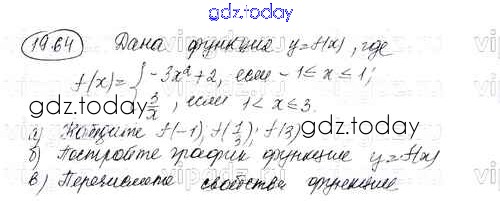 gdz.today
19.64 Дана функция y=f(x), где
f(x)= { -3x²+2, если -1≤x≤1;
3/x, если 1<x≤3.
gdz.today
gdz.today
а) Найдите f(-1), f(1/3); f(3)
б) Постройте график функции y=f(x)
в) Перечислите свойства функции